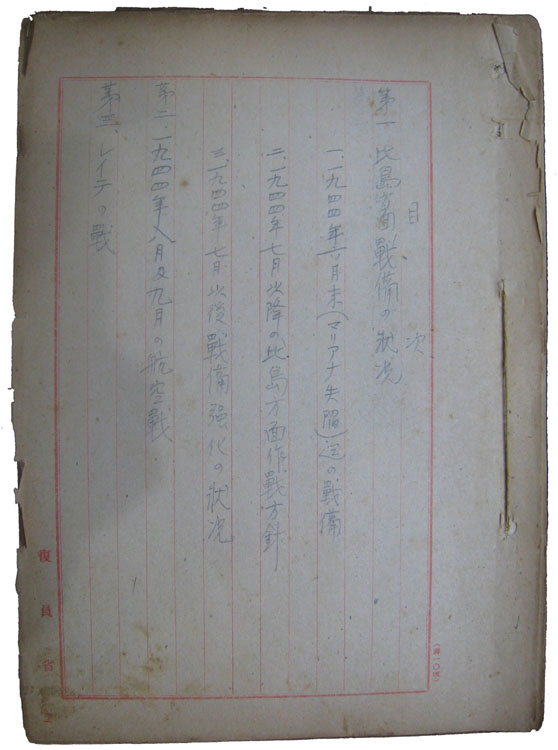 目次
第一、比島方面戰備の狀况
一、一九四四年六月末(マリアナ失陷)迄の戰備
二、一九四四年七月以降の比島方面作戰方針
三、一九四四年七月以後戰備强化の狀况
第二、一九四四年八月及九月の航空戰
第三、レイテの戰
復員省